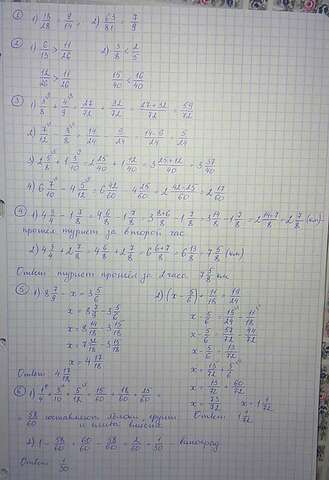 ① 1) 18/28 = 9/14, 2) 63/81 = 7/9
② 1) 6/13 > 11/26 2) 3/8 < 2/5
12/26 > 11/26 15/40 < 16/40
③ 1) 3/8 + 4/9 = 27/72 + 32/72 = 27+32/72 = 59/72
2) 7/12 - 3/8 = 14/24 - 9/24 = 14-9/24 = 5/24
3) 2 5/8 + 1 3/10 = 2 25/40 + 1 12/40 = 3 25+12/40 = 3 37/40
4) 6 7/10 - 4 5/12 = 6 42/60 - 4 25/60 = 2 42-25/60 = 2 17/60
④ 1) 4 3/4 - 1 7/8 = 4 6/8 - 1 7/8 = 3 8+6/8 - 1 7/8 = 3 14/8 - 1 7/8 = 2 14-7/8 = 2 7/8 (км) -
прошел турист за второй час
2) 4 3/4 + 2 7/8 = 4 6/8 + 2 7/8 = 6 6+7/8 = 6 13/8 = 7 5/8 (км)
Ответ: турист прошел за 2 часа 7 5/8 км
⑤ 1) 8 7/9 - x = 3 5/6 2) (x - 5/6) + 11/18 = 19/24
x = 8 7/9 - 3 5/6
x = 8 14/18 - 3 15/18
x = 7 32/18 - 3 15/18
x = 4 17/18
Ответ: 4 17/18
x - 5/6 = 19/24 - 11/18
x - 5/6 = 57/72 - 44/72
x - 5/6 = 13/72
x = 13/72 + 5/6
x = 13/72 + 60/72
x = 73/72 x = 1 1/72
Ответ: 1 1/72
⑥ 1) 1/4 + 3/10 + 5/12 = 15/60 + 18/60 + 25/60 =
= 58/60 составляют яблоки, груши
и слива вместе
2) 1 - 58/60 = 60/60 - 58/60 = 2/60 = 1/30 - виноград
Ответ: 1/30